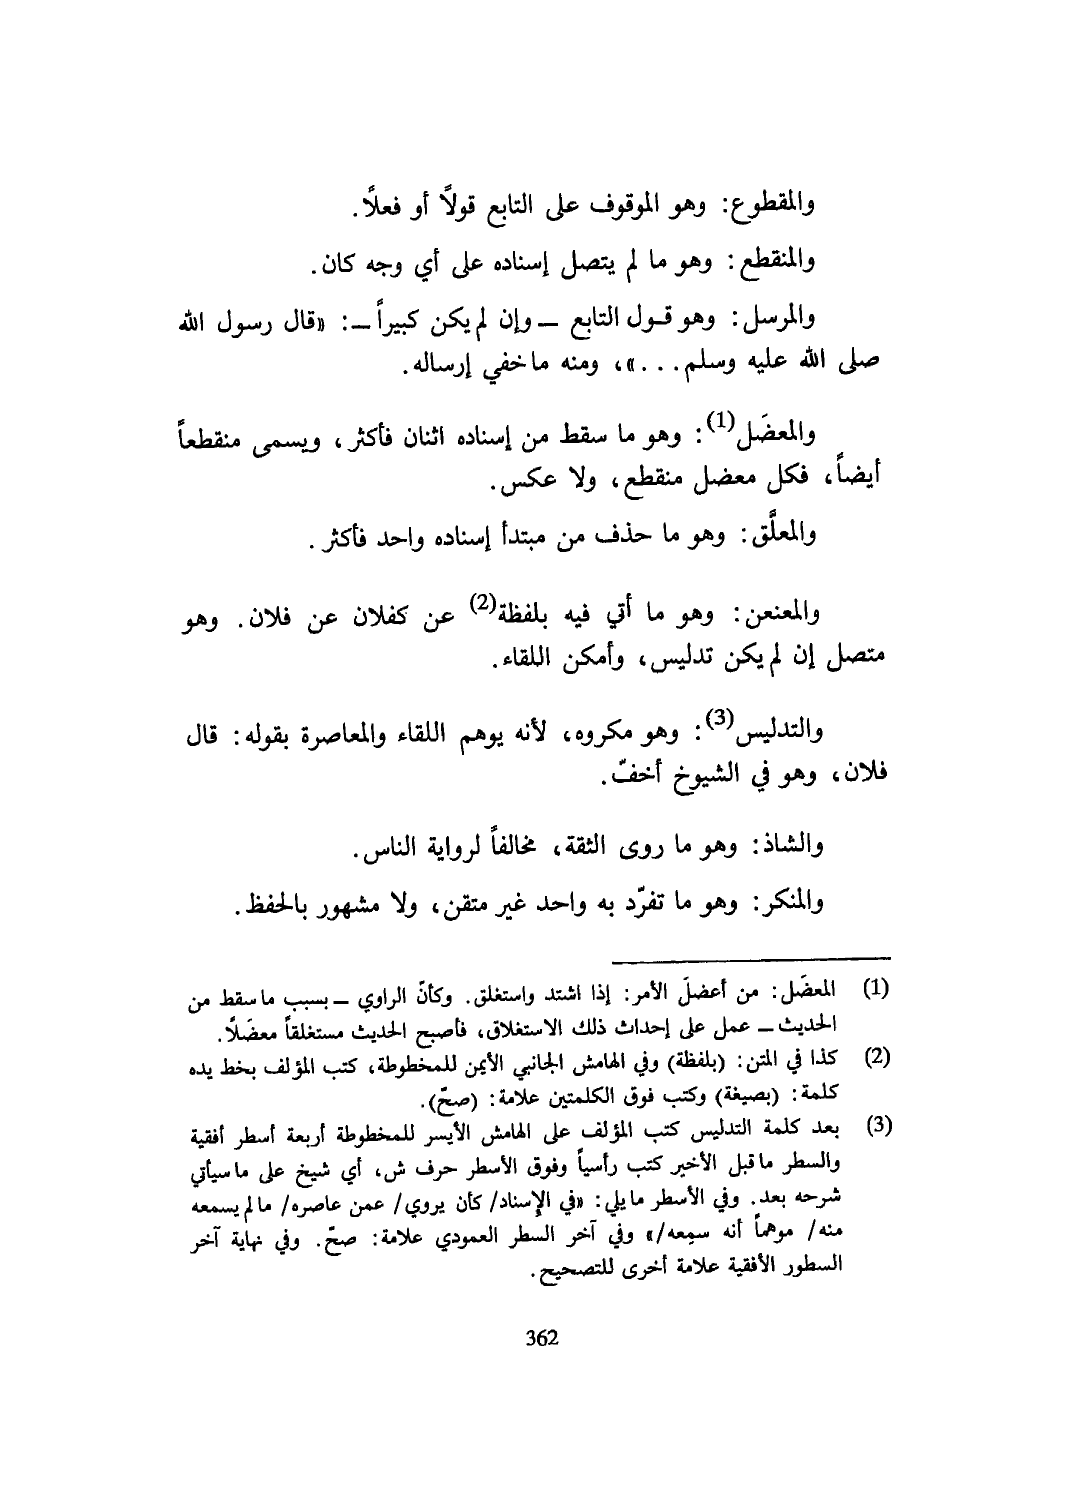 والمقطوع: وهو الموقوف على التابع قولاً أو فعلاً.
والمنقطع: وهو ما لم يتصل إسناده على أي وجه كان.
والمرسل: وهو قول التابع — وإن لم يكن كبيراً —: «قال رسول الله
صلى الله عليه وسلم...»، ومنه ما خفي إرساله.
والمعضَل(1): وهو ما سقط من إسناده اثنان فأكثر، ويسمى منقطعاً
أيضاً، فكل معضل منقطع، ولا عكس.
والمعلَّق: وهو ما حذف من مبتدأ إسناده واحد فأكثر.
والمعنعن: وهو ما أتي فيه بلفظة(2) عن كفلان عن فلان. وهو
متصل إن لم يكن تدليس، وأمكن اللقاء.
والتدليس(3): وهو مكروه، لأنه يوهم اللقاء والمعاصرة بقوله: قال
فلان، وهو في الشيوخ أخفّ.
والشاذ: وهو ما روى الثقة، مخالفاً لرواية الناس.
والمنكر: وهو ما تفرّد به واحد غير متقن، ولا مشهور بالحفظ.
(1) المعضَل: من أعضلَ الأمر: إذا اشتد واستغلق. وكأنّ الراوي — بسبب ما سقط من
الحديث — عمل على إحداث ذلك الاستغلاق، فأصبح الحديث مستغلقاً معضَلاً.
(2) كذا في المتن: (بلفظة) وفي الهامش الجانبي الأيمن للمخطوطة، كتب المؤلف بخط يده
كلمة: (بصيغة) وكتب فوق الكلمتين علامة: (صحّ).
(3) بعد كلمة التدليس كتب المؤلف على الهامش الأيسر للمخطوطة أربعة أسطر أفقية
والسطر ما قبل الأخير كتب رأسياً وفوق الأسطر حرف ش، أي شيخ على ما سيأتي
شرحه بعد. وفي الأسطر ما يلي: «في الإسناد/ كأن يروي/ عمن عاصره/ ما لم يسمعه
منه/ موهماً أنه سمعه/» وفي آخر السطر العمودي علامة: صحّ. وفي نهاية آخر
السطور الأفقية علامة أخرى للتصحيح.
362